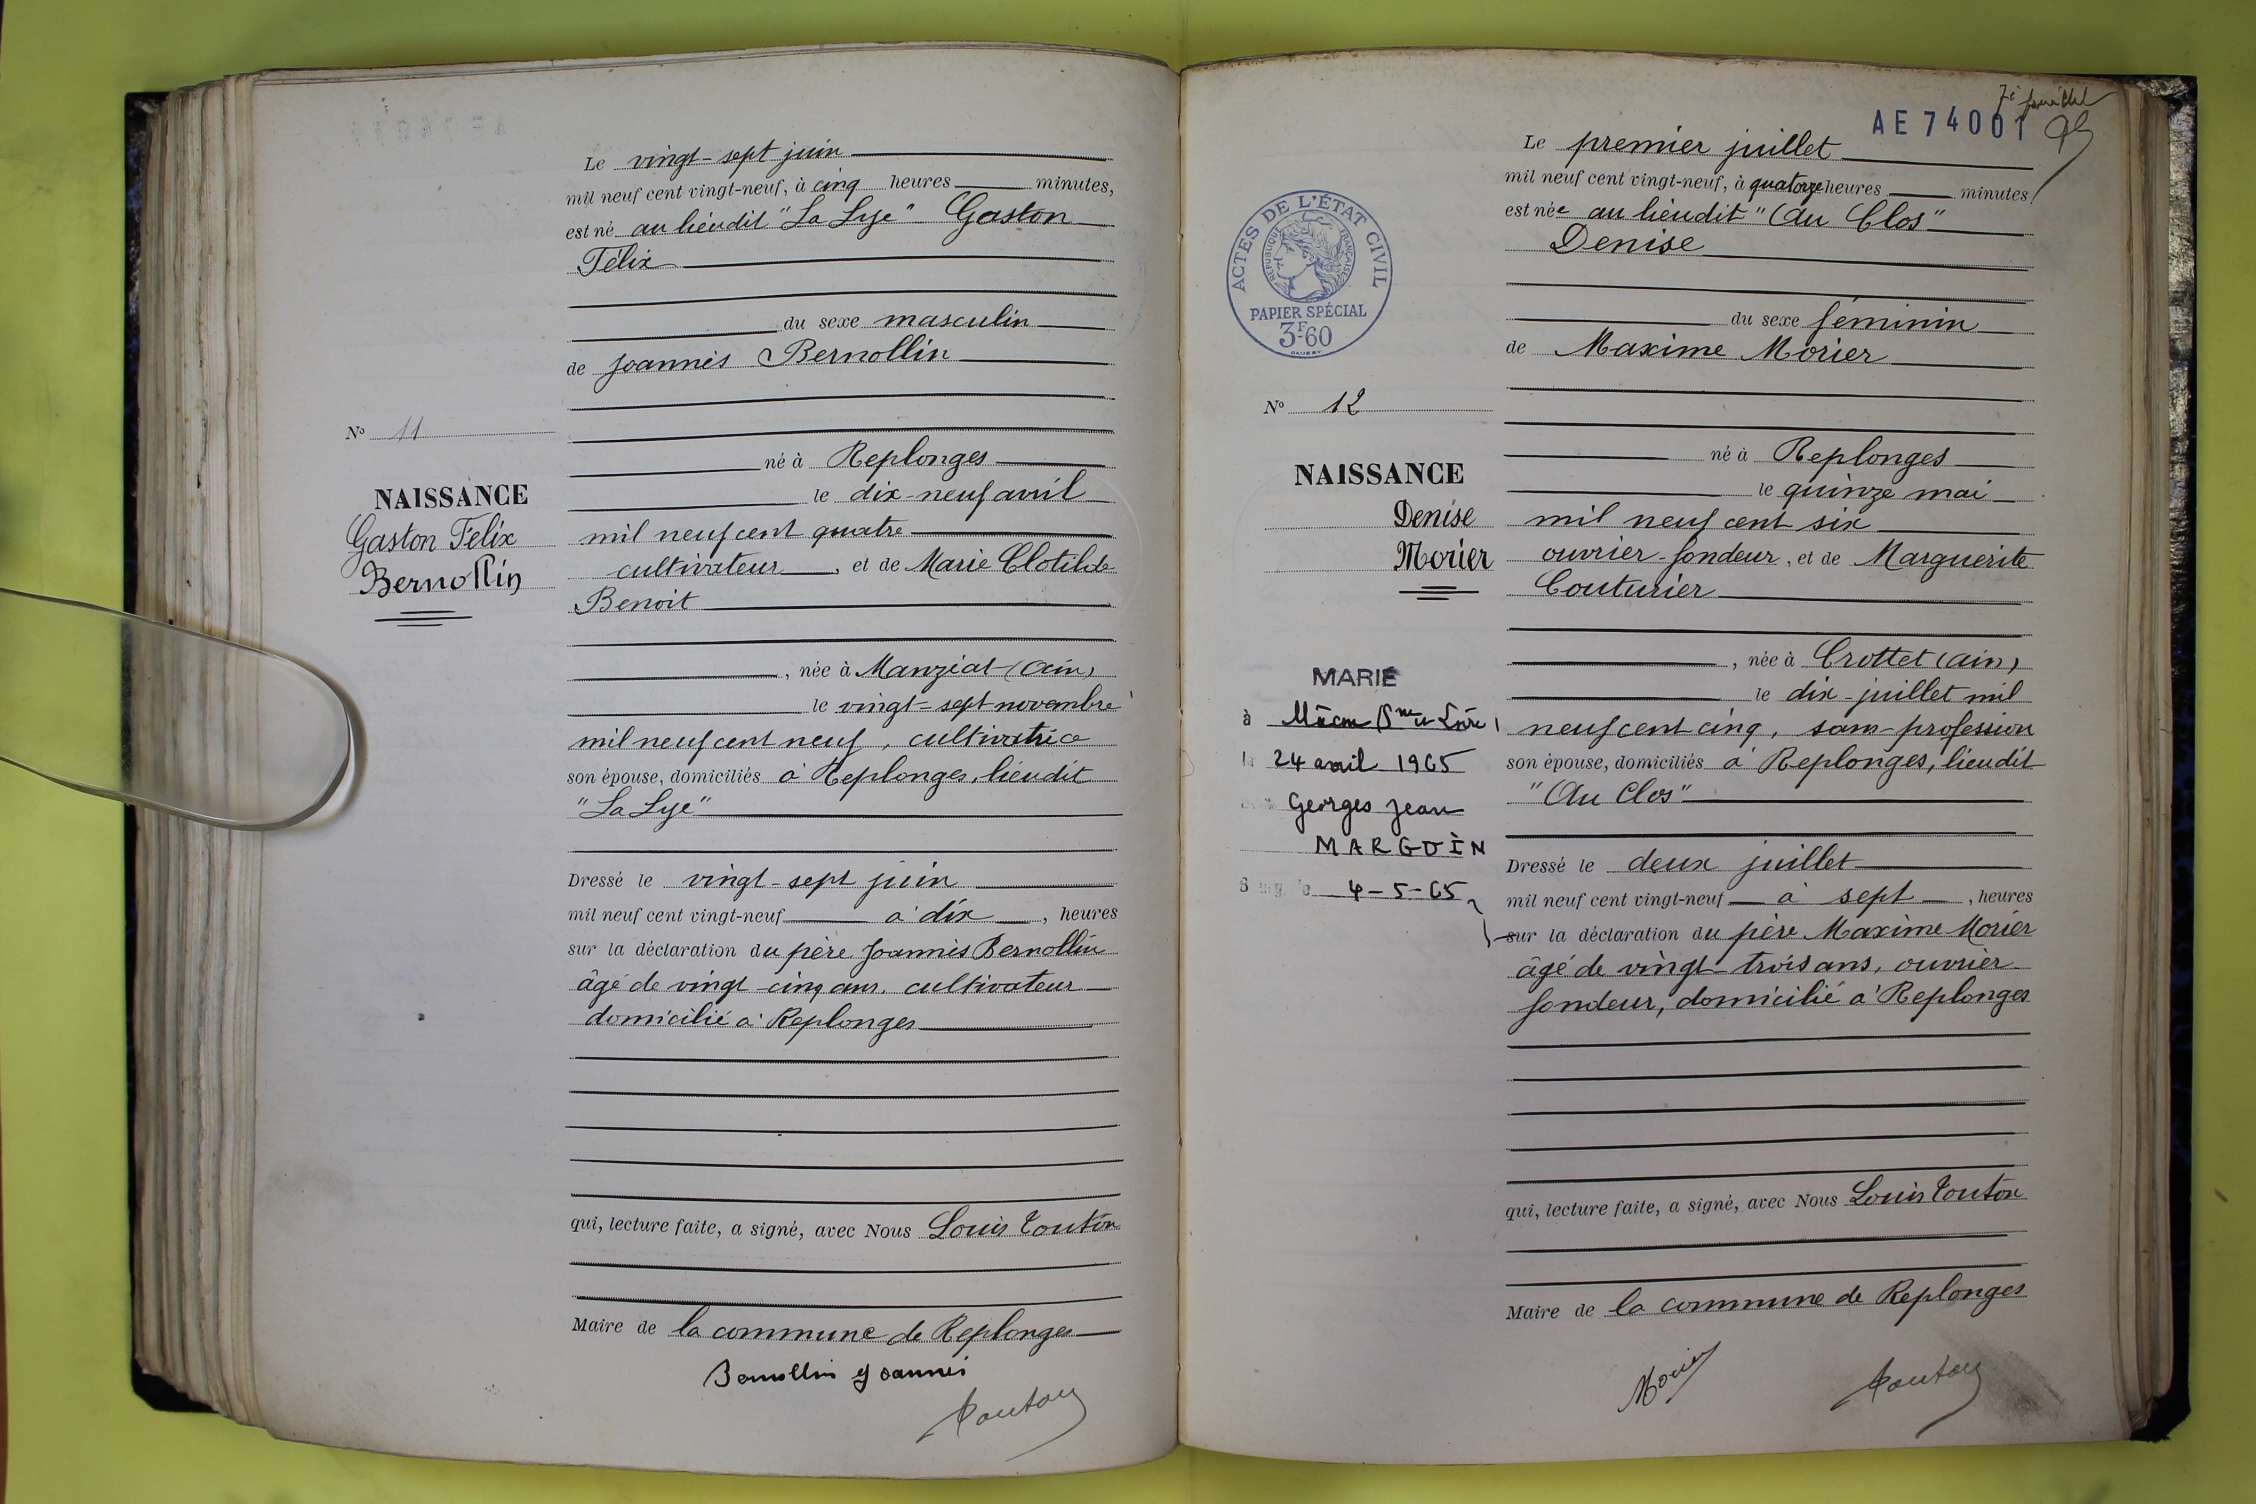 Le vingt-sept juin
mil neuf cent vingt-neuf, à cinq heures minutes,
est né au lieudit "La Lye" Gaston
Félix
du sexe masculin
de Joannès Bernollin
né à Replonges
le dix-neuf avril
mil neuf cent quatre
cultivateur, et de Marie Clotilde
Benoit
, née à Manziat (Ain)
le vingt-sept novembre
mil neuf cent neuf, cultivatrice
son épouse, domiciliés à Replonges, lieudit
"La Lye"
Dressé le vingt-sept juin
mil neuf cent vingt-neuf à dix, heures
sur la déclaration du père Joannès Bernollin
âgé de vingt-cinq ans, cultivateur
domicilié à Replonges
qui, lecture faite, a signé, avec Nous Louis Touton
Maire de la commune de Replonges
Bernollin Joannès
Touton
No 11
NAISSANCE
Gaston Félix
Bernollin
7e feuillet
AE 74001
Le premier juillet
mil neuf cent vingt-neuf, à quatorze heures minutes,
est née au lieudit "Au Clos"
Denise
du sexe féminin
de Maxime Morier
né à Replonges
le quinze mai
mil neuf cent six
ouvrier-fondeur, et de Marguerite
Couturier
, née à Crottet (Ain)
le dix-juillet mil
neuf cent cinq, sans-profession
son épouse, domiciliés à Replonges, lieudit
"Au Clos"
Dressé le deux juillet
mil neuf cent vingt-neuf à sept, heures
sur la déclaration du père Maxime Morier
âgé de vingt-trois ans, ouvrier
fondeur, domicilié à Replonges
qui, lecture faite, a signé, avec Nous Louis Touton
Maire de la commune de Replonges
Morier
Touton
ACTES DE L'ÉTAT CIVIL
RÉPUBLIQUE FRANÇAISE
PAPIER SPÉCIAL
3F60
No 12
NAISSANCE
Denise
Morier
MARIÉ
à Mâcon (Sne et Loire)
le 24 avril 1965
Georges Jean
MARGUIN
le 4-5-65